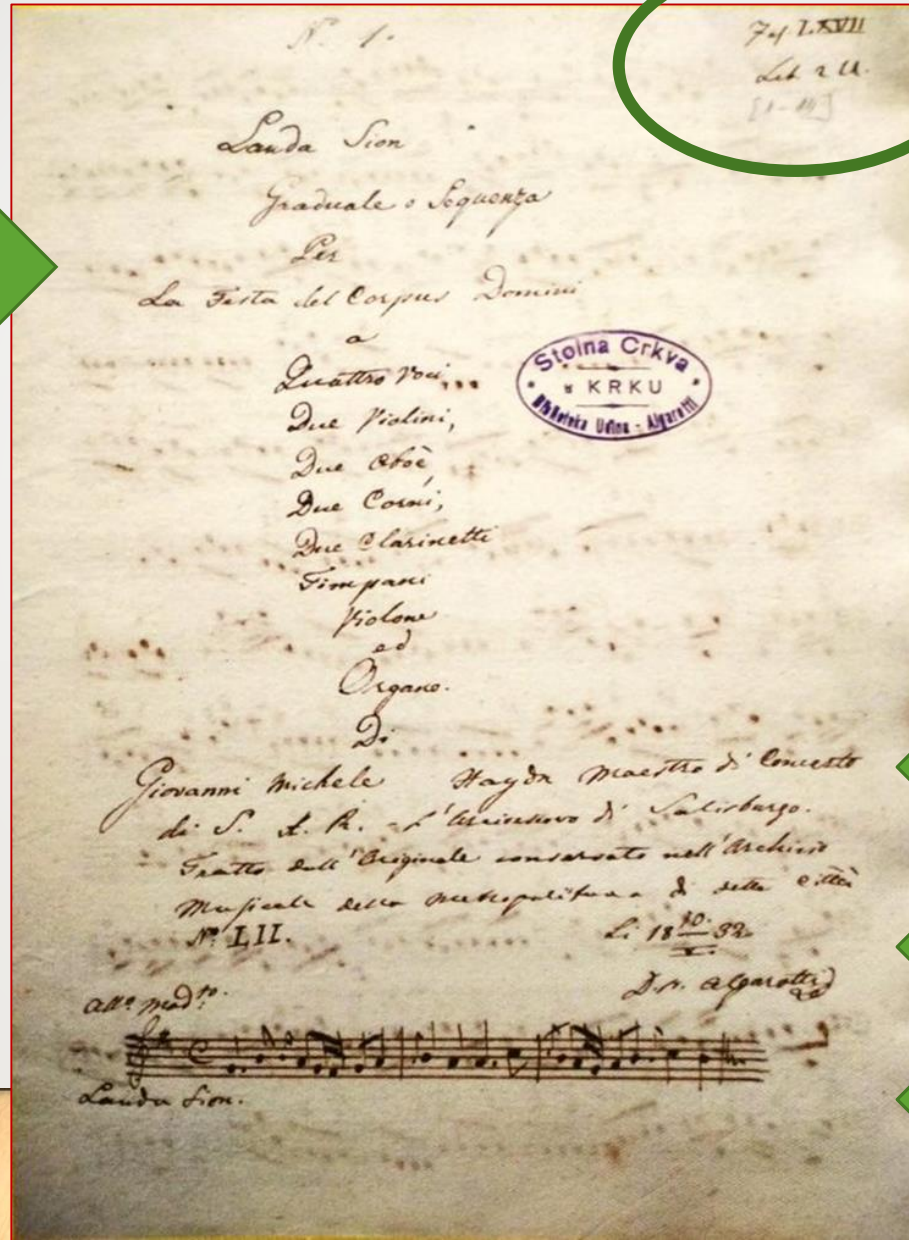 N. 1.
Lit 2 U.
[I-III]
Lauda Sion
Graduale o Sequenza
Per
La Festa del Corpus Domini
a
Quattro Voci
Due Violini,
Due Oboè,
Due Corni,
Due Clarinetti
Timpani
Violone
ed
Organo.
Di
Stolna Crkva
u KRKU
Biblioteka Udina - Algarotti
Giovanni Michele Haydn Maestro di Concerto
di S. A. R. L'Arcivescovo di Salisburgo.
Tratto dall'Originale conservato nell'Archivio
Musicale della Metropolitana di detta città
N° LII.
Li 18 10/X 32
D. Algarotti
All° Mod.to
Lauda Sion.